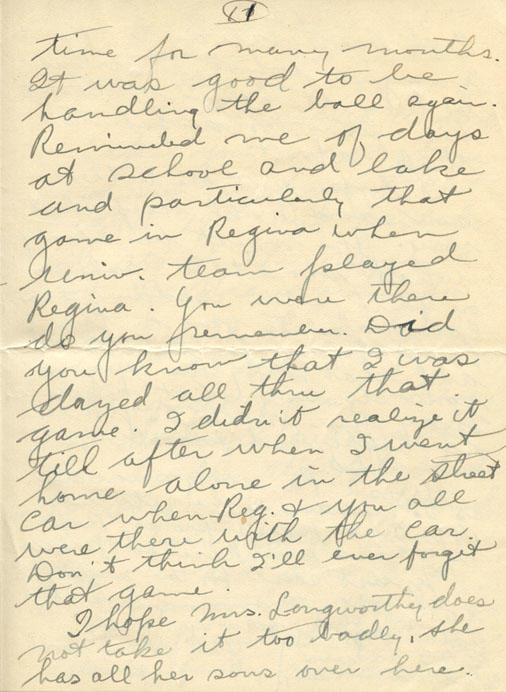 11
time for many months.
It was good to be
handling the ball again.
Reminded me of days
at school and lake
and particularly that
game in Regina when
Univ. team played
Regina. You were there
do you remember. Did
you know that I was
dazed all thru that
game. I didn't realize it
till after when I went
home alone in the street
car when Reg. & you all
were there with the car.
Don't think I'll ever forget
that game.
I hope Mrs. Longworthy does
not take it too badly, she
has all her sons over here.